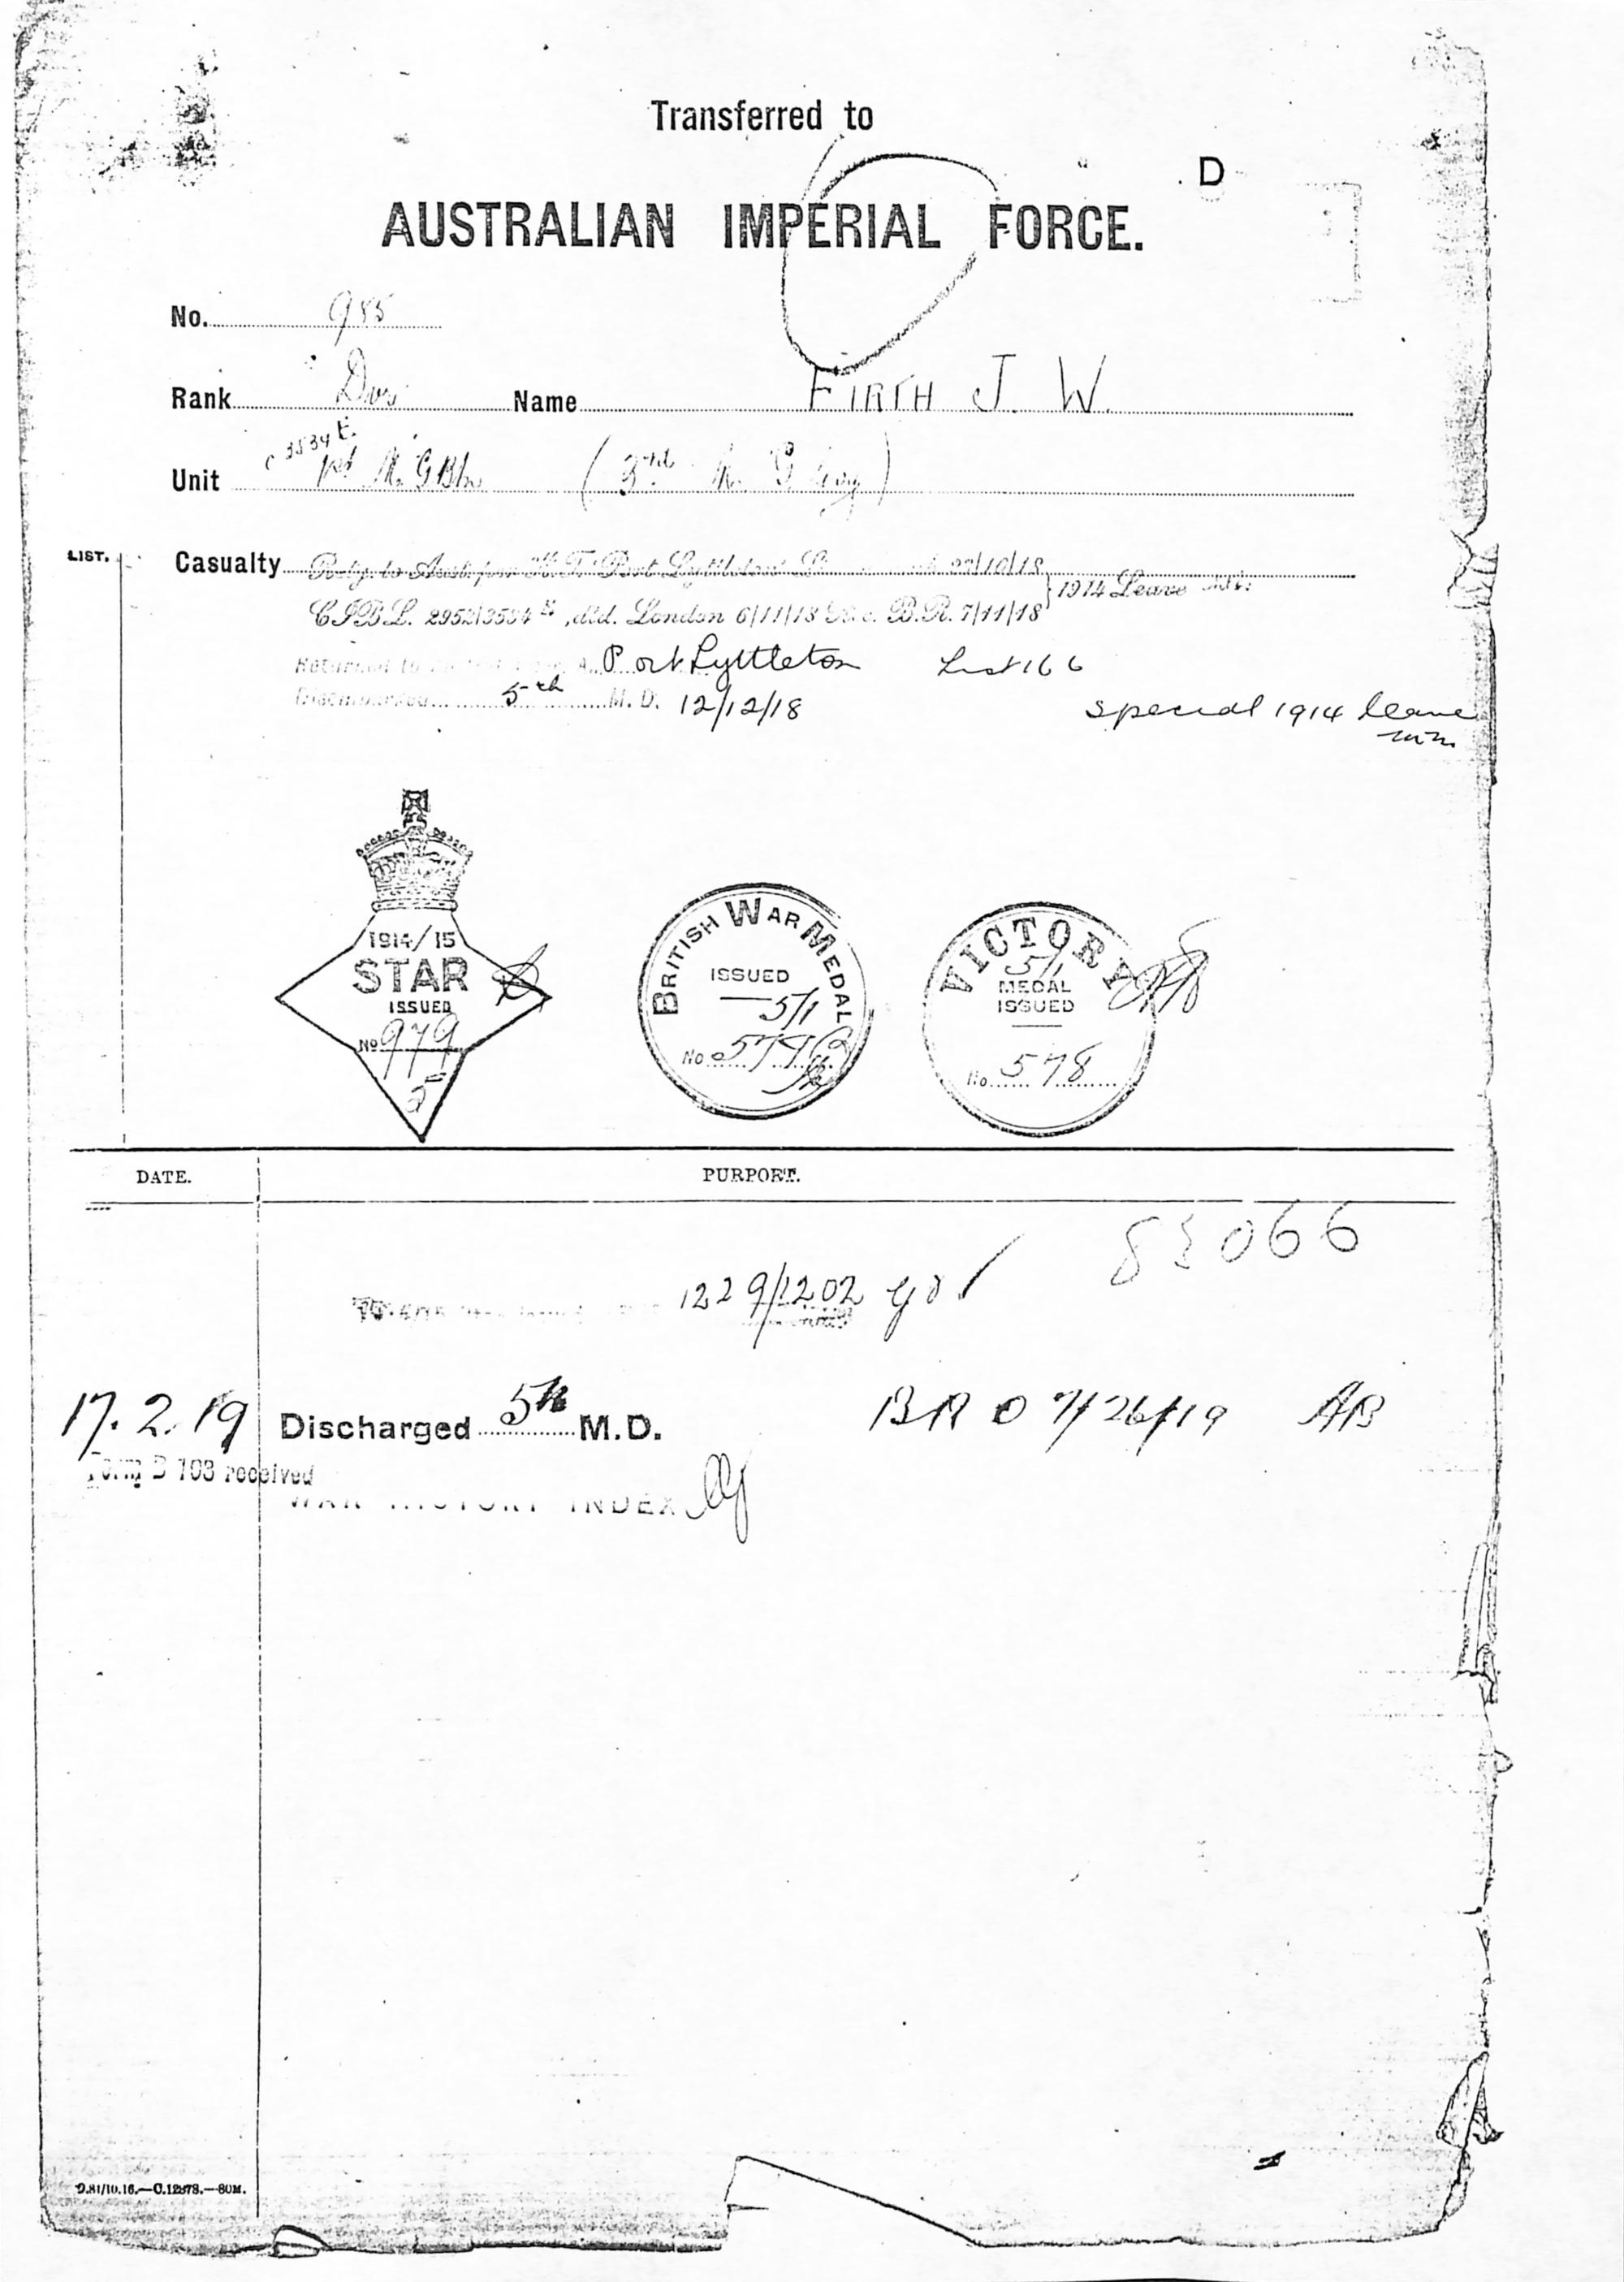 Transferred to
D
AUSTRALIAN IMPERIAL FORCE.
No. 985
Rank Dvr Name FIRTH J. W.
3534 E.
Unit 1st M. G Btn (3rd M. G. Coy)
LIST.
Casualty Retg. to Aust. per H.T. "Port Lyttleton" 22/10/18
1914 Leave
C.I.B.L. 2952/3534 E, dtd. London 6/11/18 Rec. B.R. 7/11/18
Returned to Port Lyttleton List 166
Disembarked 5th M. D. 12/12/18
special 1914 leave
1914/15
STAR
ISSUED
No 979
5
BRITISH WAR MEDAL
ISSUED
5/1
No
VICTORY
5/1
MEDAL
ISSUED
No. 578
DATE.
PURPORT.
83066
1229/1202
17.2.19 Discharged 5th M.D. B R O 7/26/19 AB
Form B 103 received
WAR HISTORY INDEX
D.81/10.16.—C.12873.—80M.